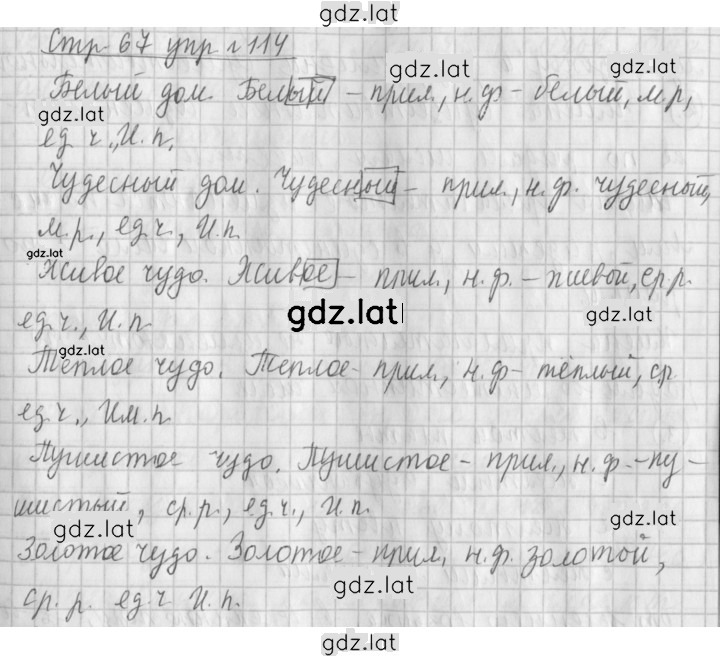 gdz.lat
Стр 67 упр № 114
gdz.lat
Белый дом. Белый – прил., н.ф – белый, м.р,
gdz.lat
gdz.lat
ед ч., И.п.
Чудесный дом. Чудесный – прил., н.ф. чудесный,
м.р., ед.ч., И.п.
gdz.lat
Живое чудо. Живое – прил., н.ф. – живой, ср.р.
gdz.lat
gdz.lat
ед.ч., И.п.
gdz.lat
Теплое чудо. Теплое – прил., н.ф – тёплый, ср
ед.ч., Им.п.
Пушистое чудо. Пушистое – прил., н.ф. – пу-
шистый, ср.р., ед.ч., И.п.
gdz.lat
gdz.lat
Золотое чудо. Золотое – прил, н.ф. золотой,
gdz.lat
ср.р. ед.ч И.п.
gdz.lat